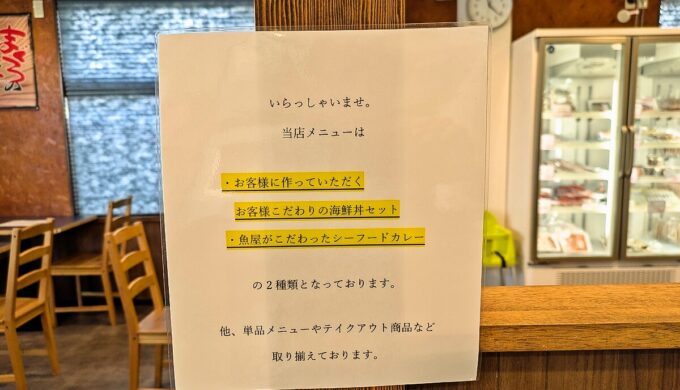 まぐろの
いらっしゃいませ。
当店メニューは
・お客様に作っていただく
お客様こだわりの海鮮丼セット
・魚屋がこだわったシーフードカレー
の２種類となっております。
他、単品メニューやテイクアウト商品など
取り揃えております。